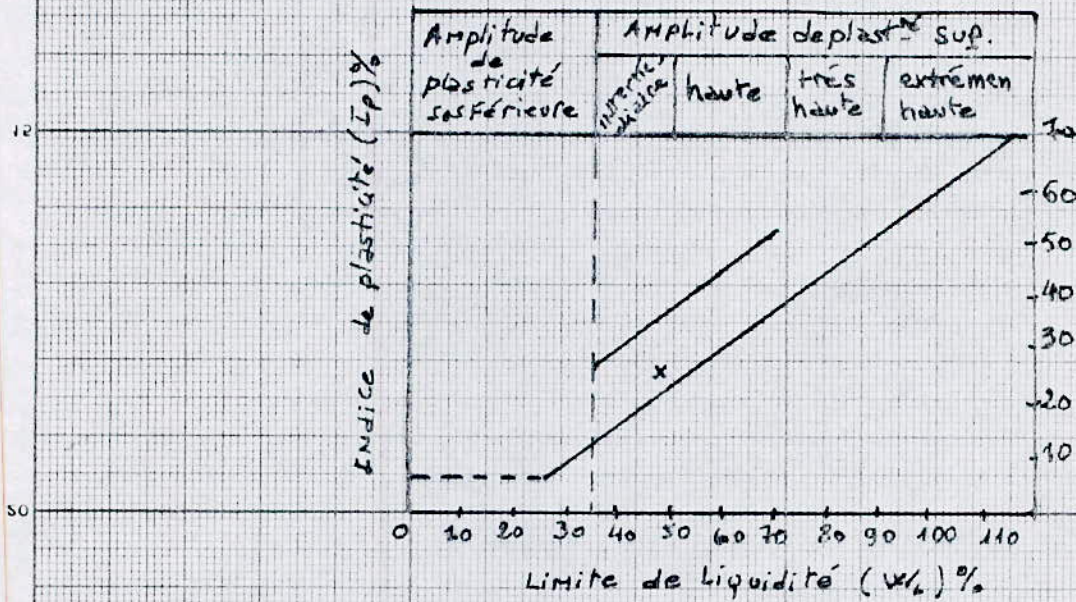 Amplitude
de
plasticité
Amplitude de plast té sup.
haute
trés
haute
extrémen
haute
12
50
Indice de plasticité (Ip)%
70
60
50
40
30
20
10
x
0 10 20 30 40 50 60 70 80 90 100 110
Limite de Liquidité (WL) %